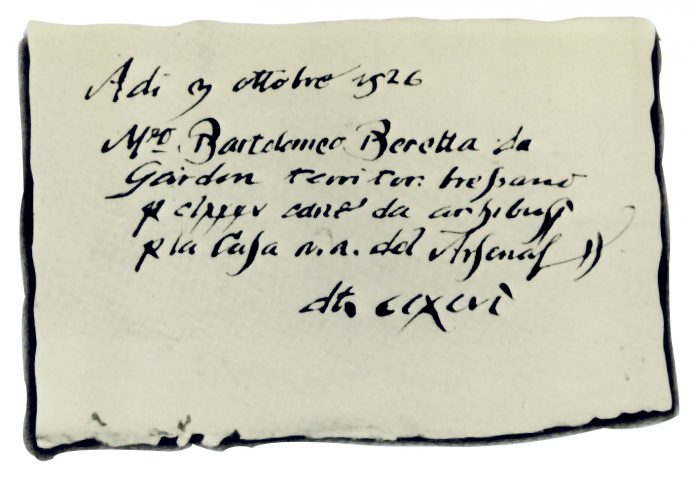 Adi 3 ottobre 1526
Mro. Bartolomeo Beretta da
Gardon territor: bressano
p clxxxv cane da archibusi
p la Casa n.a. del Arsenal
dti. ccxcvi